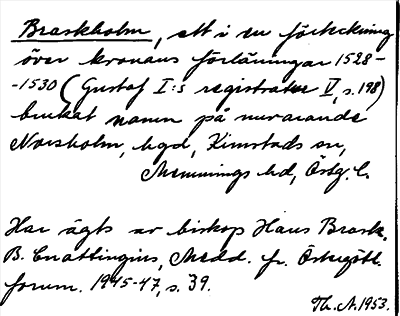 Braskholm, ett i en förteckning
över kronans förläningar 1528-
-1530 (Gustaf I:s registratur V, s. 198)
brukat namn på nuvarande
Norsholm, hgd, Kimstads sn,
Memmings hd, Östg. l.
Har ägts av biskop Hans Brask.
B. Cnattingius, Medd. fr. Östergötl.
fornm. 1945-47, s. 39.
Th. A. 1953.